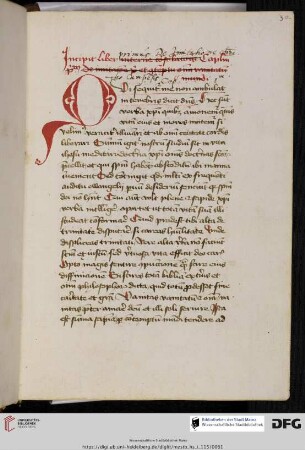 30.
Incipit liber interne consolationis Capitulum
mundi
Qui sequitur me non ambulat
in tenebris dicit dns. Hec sunt
verba xpi quibus amonemur quatenus
vitam eius et mores imitemur si
velimus veraciter illuminari et ab omni cecitate cordis
liberari Summum igitur studium nostrum sit in vita
ihesu meditari doctrina xpi omnes doctrinas sanctorum
precellit et qui spiritum haberet absconditum ibi manna
inveniret Sed contingit quod multi ex frequenti
auditu ewangelii parvum desiderium senciunt quia spiritum
xpi non habent Qui autem vult plene et sapide xpi
verba intelligere oportet ut totam vitam suam illi
studeat conformare Quid prodest tibi alta de
trinitate disputare si careas humilitate unde
displiceas trinitati Vere alta verba non faciunt
sanctum et iustum sed virtuosa vita efficit deo carum
Opto magis sentire compunctionem quam scire eius
diffinicionem Si scires totam bibliam exterius et
omnium philosophorum dicta quid totum prodesset sine
caritate et gratia Vanitas vanitatum et omnia vanitas
preter amare deum et illi soli servire Ista
est summa sapiencia per contemptum mundi tendere ad
UNIVERSITÄTS-
BIBLIOTHEK
HEIDELBERG
Wissenschaftliche Stadtbibliothek Mainz
https://digi.ub.uni-heidelberg.de/diglit/mestb_hs_i_115/0061
Bibliotheken der Stadt Mainz
Wissenschaftliche Stadtbibliothek
DFG